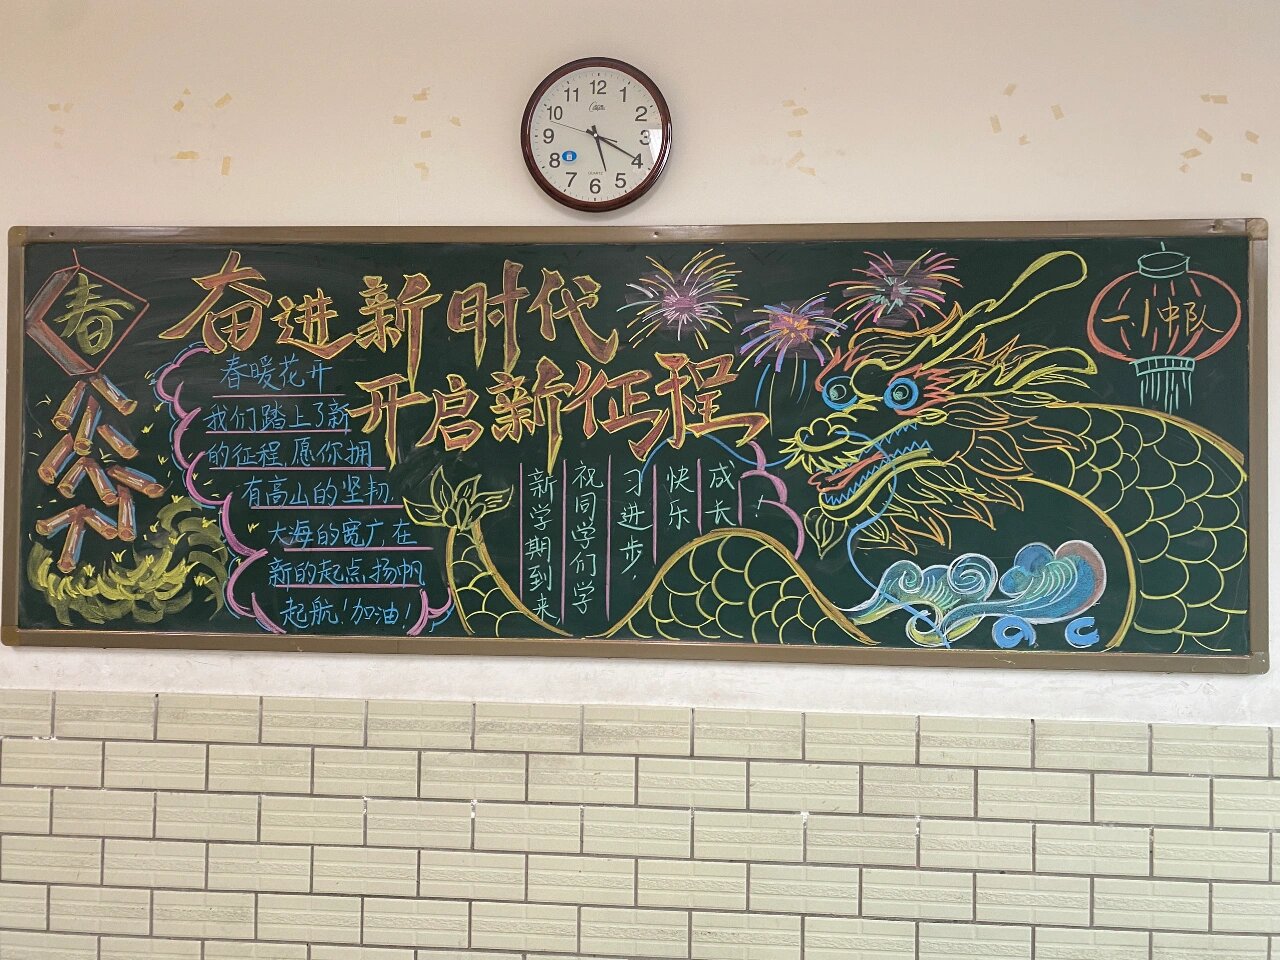 12
11 1
10 2
9 3
8 4
7 5
6
QUARTZ
春
奋进新时代
开启新征程
春暖花开
我们踏上了新
的征程,愿你拥
有高山的坚韧,
大海的宽广,在
新的起点,扬帆
起航!加油!
新学期到来
祝同学们学
习进步,
快乐
成长!
一1中队